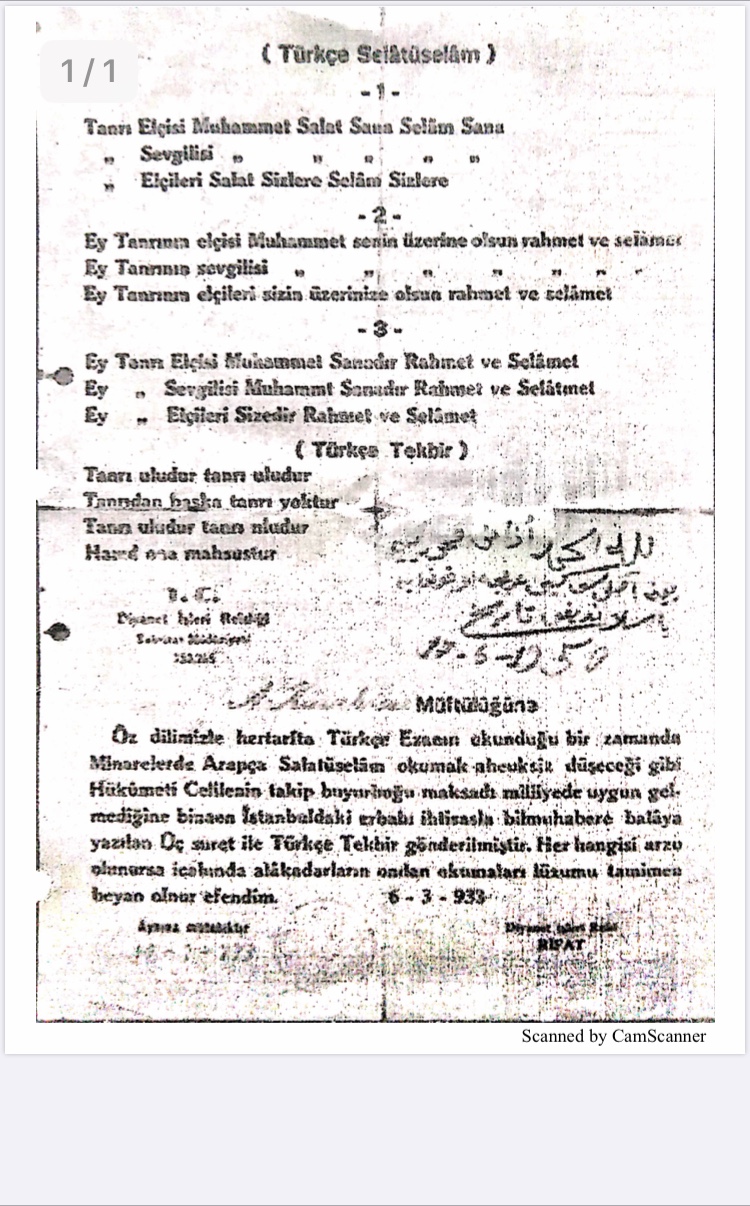 1/1
( Türkçe Selâtüselâm )
- 1 -
Tanrı Elçisi Muhammet Salat Sana Selâm Sana
„ Sevgilisi „ „ „ „ „
„ Elçileri Salat Sizlere Selâm Sizlere
- 2 -
Ey Tanrının elçisi Muhammet senin üzerine olsun rahmet ve selâmet
Ey Tanrının sevgilisi „ „ „ „ „ „
Ey Tanrının elçileri sizin üzerinize olsun rahmet ve selâmet
- 3 -
Ey Tanrı Elçisi Muhammet Sanadır Rahmet ve Selâmet
Ey „ Sevgilisi Muhammt Sanadır Rahmet ve Selâtmet
Ey „ Elçileri Sizedir Rahmet ve Selâmet
( Türkçe Tekbir )
Tanrı uludur tanrı uludur
Tanrıdan başka tanrı yoktur
Tanrı uludur tanrı uludur
Hamd ona mahsustur
T. C.
Diyanet İşleri Reisliği
17-6-1950
Müftülüğüne
Öz dilimizle hertarafta Türkçe Ezanın okunduğu bir zamanda
Minarelerde Arapça Salatüselâm okumak ahenksiz düşeceği gibi
Hükûmeti Celilenin takip buyurduğu maksadı milliyede uygun gel-
mediğine binaen İstanbuldaki erbabı ihtisasla bilmuhabere balâya
yazılan Üç suret ile Türkçe Tekbir gönderilmiştir. Her hangisi arzu
olunursa icabında alâkadarların ondan okumaları lüzumu tamimen
beyan olnur efendim. 6 - 3 - 933
Diyanet İşleri Reisi
RİFAT
Scanned by CamScanner